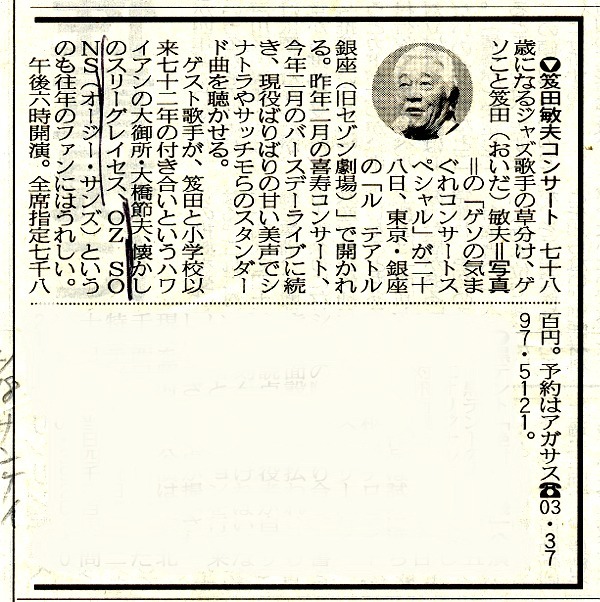 ▼笈田敏夫コンサート 七十八
歳になるジャズ歌手の草分け、ゲ
ソこと笈田（おいだ）敏夫＝写真
＝の「ゲソの気ま
ぐれコンサートス
ペシャル」が二十
八日、東京・銀座
の「ル テアトル
銀座（旧セゾン劇場）」で開かれ
る。昨年二月の喜寿コンサート、
今年二月のバースデーライブに続
き、現役ばりばりの甘い美声でシ
ナトラやサッチモらのスタンダー
ド曲を聴かせる。
ゲスト歌手が、笈田と小学校以
来七十二年の付き合いというハワ
イアンの大御所・大橋節夫、懐かし
のスリーグレイセス、OZ SO
NS（オージー・サンズ）という
のも往年のファンにはうれしい。
午後六時開演。全席指定七千八
百円。予約はアガサス☎03・37
97・5121。